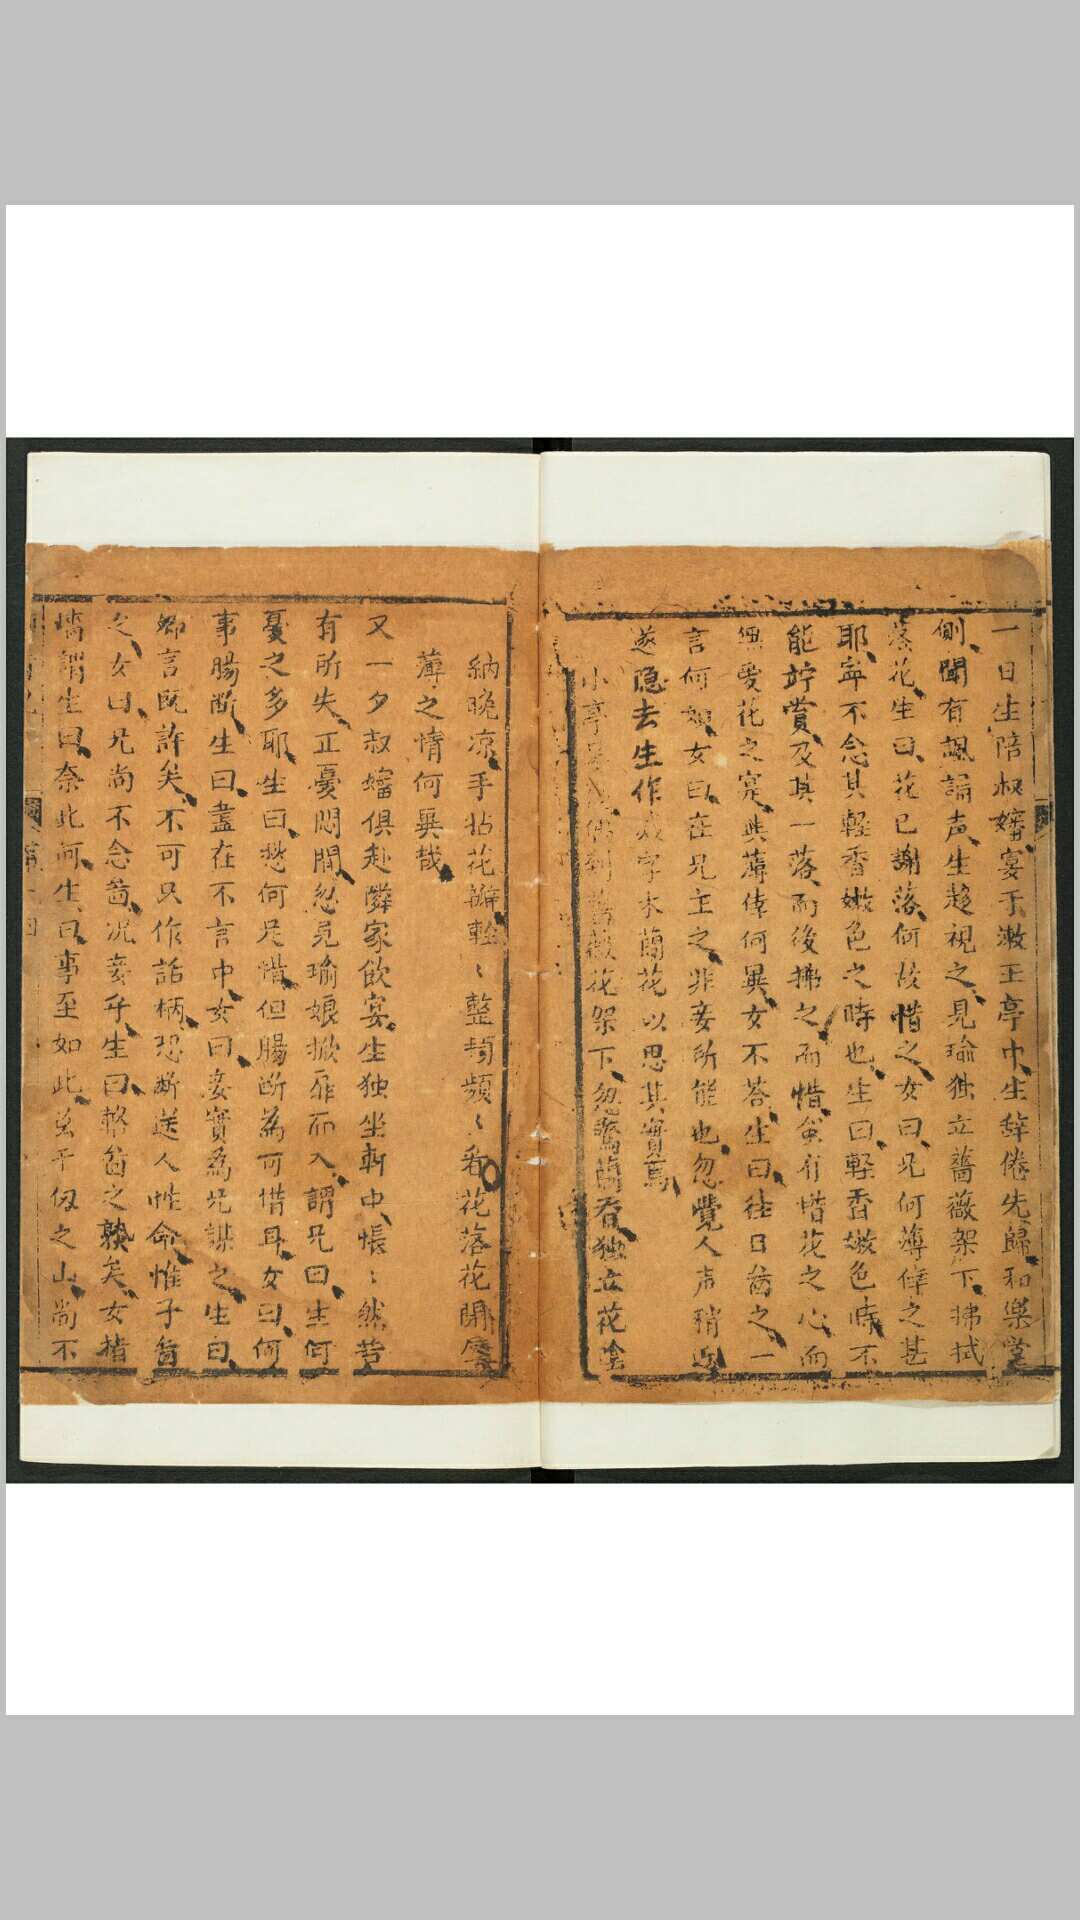 一日生陪叔嬸宴于漱玉亭中生辞倦先歸和樂堂
側聞有諷誦声生趍視之見瑜独立薔薇架下拂拭
落花生曰花已謝落何故惜之女曰兄何薄倖之甚
耶寧不念其輕香嫩色之時也生曰軽香嫩色時不
能竚賞及其一落而後拂之而惜虽有惜花之心而
無愛花之寔與薄倖何異女不荅生曰往日崙之一
言何如女曰在兄主之非妾所能也忽覺人声稍近
遂隐去生作減字木蘭花以思其實焉
小亭 佛到薔薇花架下忽驚 看独立花陰
納晚凉手拈花瓣輕〻整頻頻〻看花落花開
薄之情何異哉
又一夕叔嬸俱赴隣家飲宴生独坐軒中悵〻然若
有所失正憂悶間忽見瑜娘掀扉而入謂兄曰生何
憂之多耶生曰愁何足惜但腸断為可惜耳女曰何
事腸断生曰盡在不言中女曰妾實爲兄謀之生曰
卿言既許矣不可只作話柄恐断送人性命惟子啚
之女曰兄尚不念啚况妾乎生曰輅啚之熟矣女指
墻謂生曰奈此何生曰事至如此虽千仭之山尚不